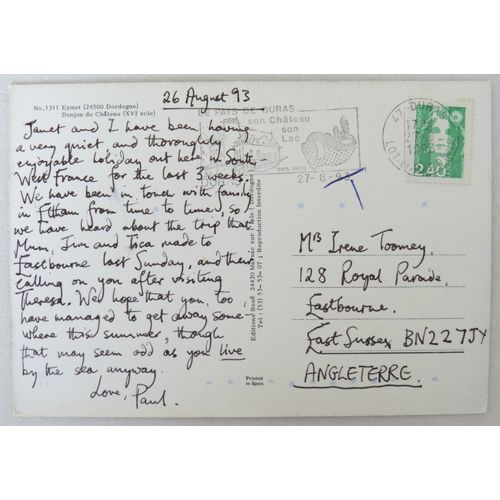 No. 1311 Eymet (24500 Dordogne)
Donjon du Château (XVI scle)
26 August 93
Janet and I have been having
a very quiet and thoroughly
enjoyable holiday out here in South-
West France for the last 3 weeks.
We have been in touch with family
in Eltham from time to time, so
we have heard about the trip that
Mum, Jim and Tica made to
Eastbourne last Sunday, and their
calling on you after visiting
Theresa. We hope that you, too
have managed to get away some-
where this summer, though
that may seem odd as you live
by the sea anyway.
Love, Paul.
LE PAYS DE DURAS
son Château
son
Lac
ses vins
27-8-93
47 DURAS
LOT-
2,40
Editions René 24430 Marsac sur l'Isle (Dordogne)
Tel: (53) 53-53-07; Reproduction Interdite
Printed
in Spain
Mrs Irene Toomey,
128 Royal Parade,
Eastbourne,
East Sussex BN22 7JY
ANGLETERRE.